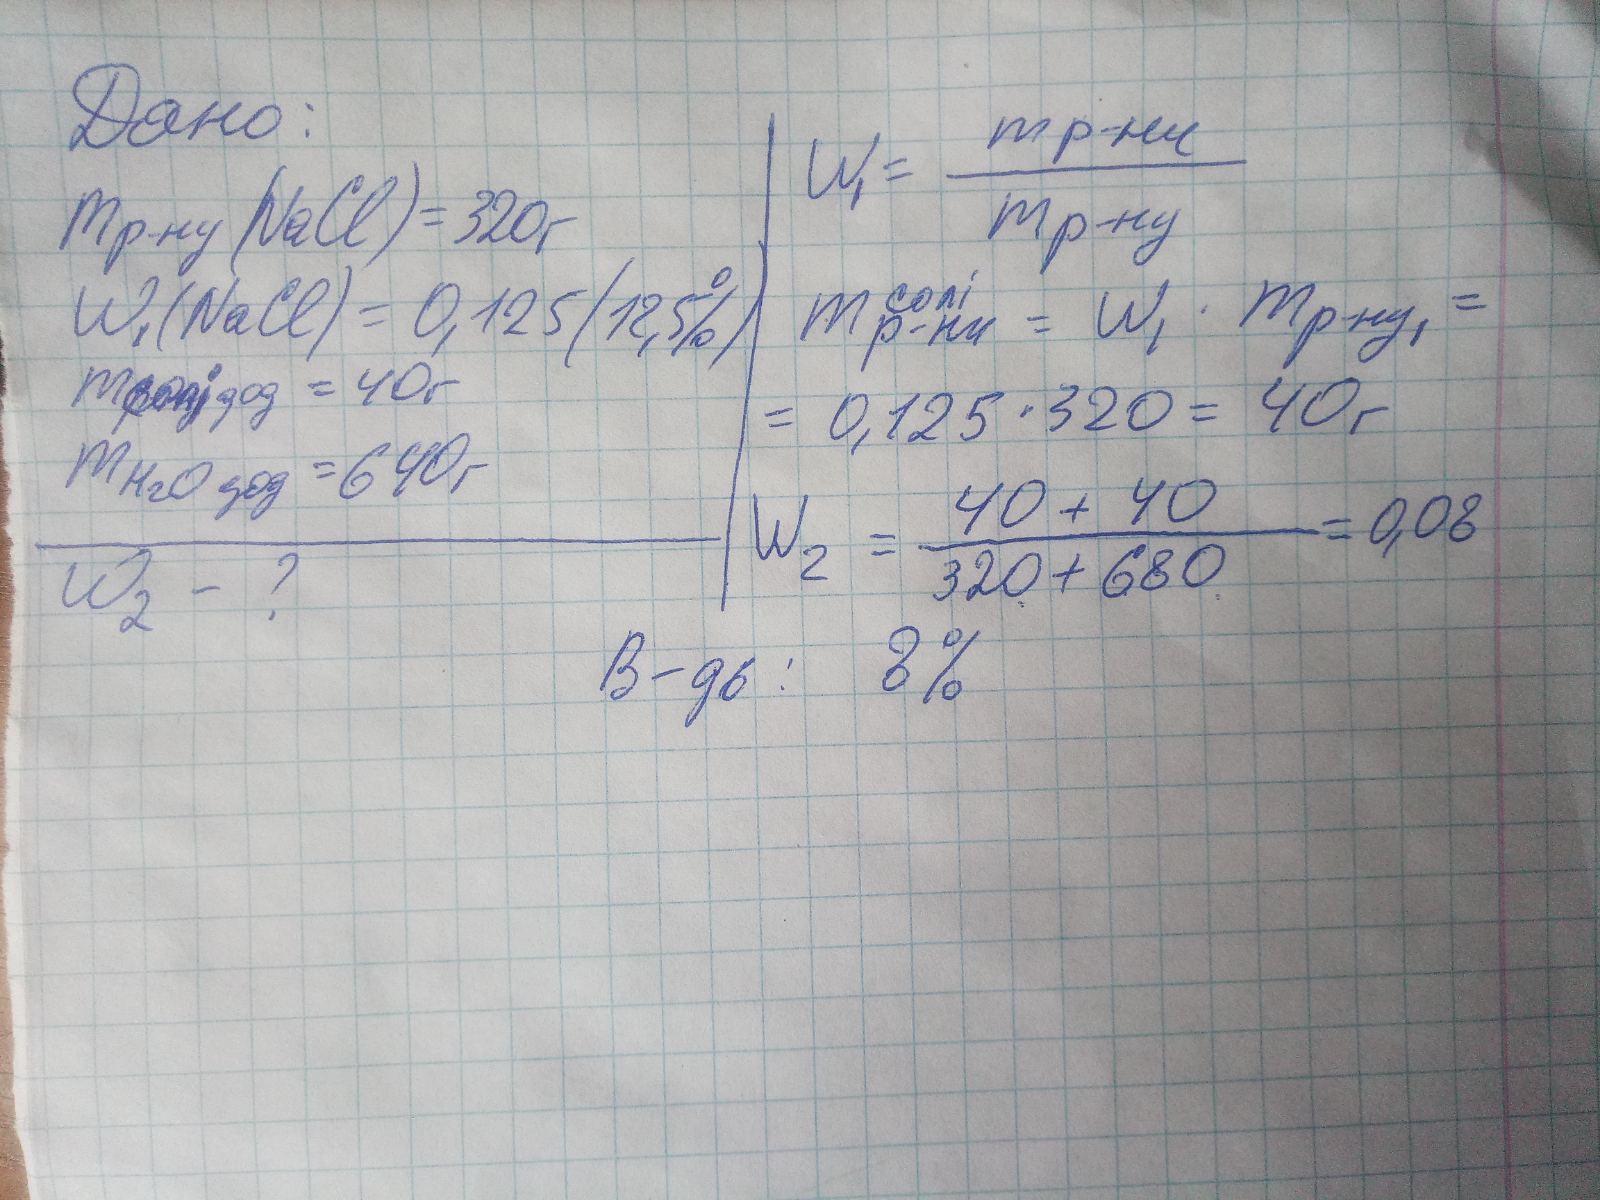 Дано:
m р-ну (NaCl) = 320г
W₁(NaCl) = 0,125 (12,5%)
m солі дод = 40г
m H₂O дод = 640г
W₂ - ?
W₁ = m р-ни / m р-ну
m солі р-ни = W₁ · m р-ну₁ =
= 0,125 · 320 = 40г
W₂ = 40 + 40 / 320 + 680 = 0,08
В-дь: 8%